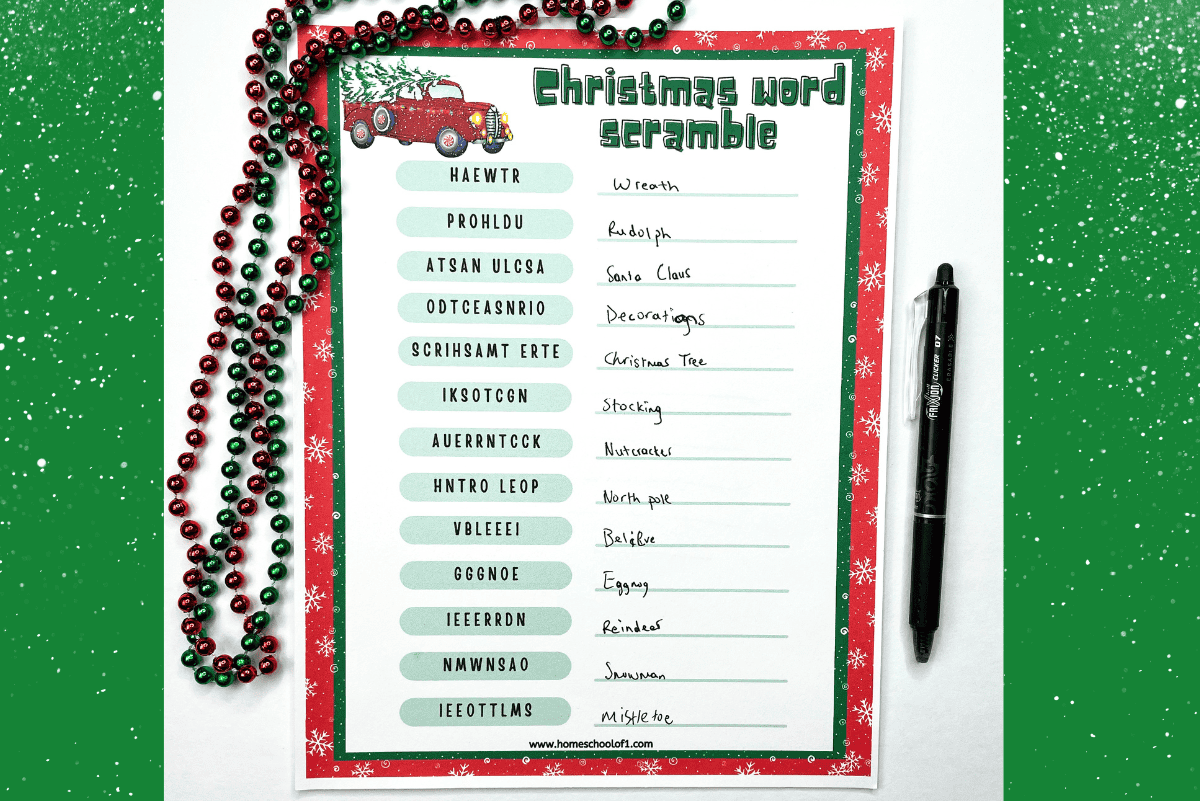 Christmas word
scramble
HAEWTR Wreath
PROHLDU Rudolph
ATSAN ULCSA Santa Claus
ODTCEASNRIO Decorations
SCRIHSAMT ERTE Christmas Tree
IKSOTCGN Stocking
AUERRNTCCK Nutcracker
HNTRO LEOP North pole
VBLEEEI Believe
GGGNOE Eggnog
IEEERRDN Reindeer
NMWNSAO Snowman
IEEOTTLMS Mistletoe
www.homeschoolof1.com
FRIXION CLICKER 07
ERASABLE